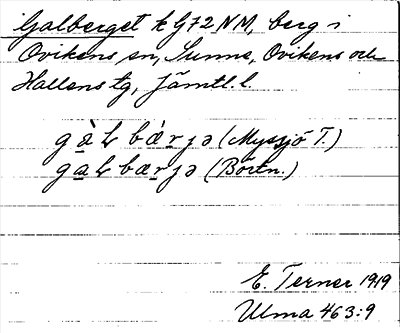 Galberget k G72 NM, berg i
Ovikens sn, Sunne, Ovikens och
Hallens tg, Jämtl. l.
gàḷ bǽrjə (Myssjö T.)
gaḷ bærjə (Börtn.)
E. Terner 1919
Ulma 463:9